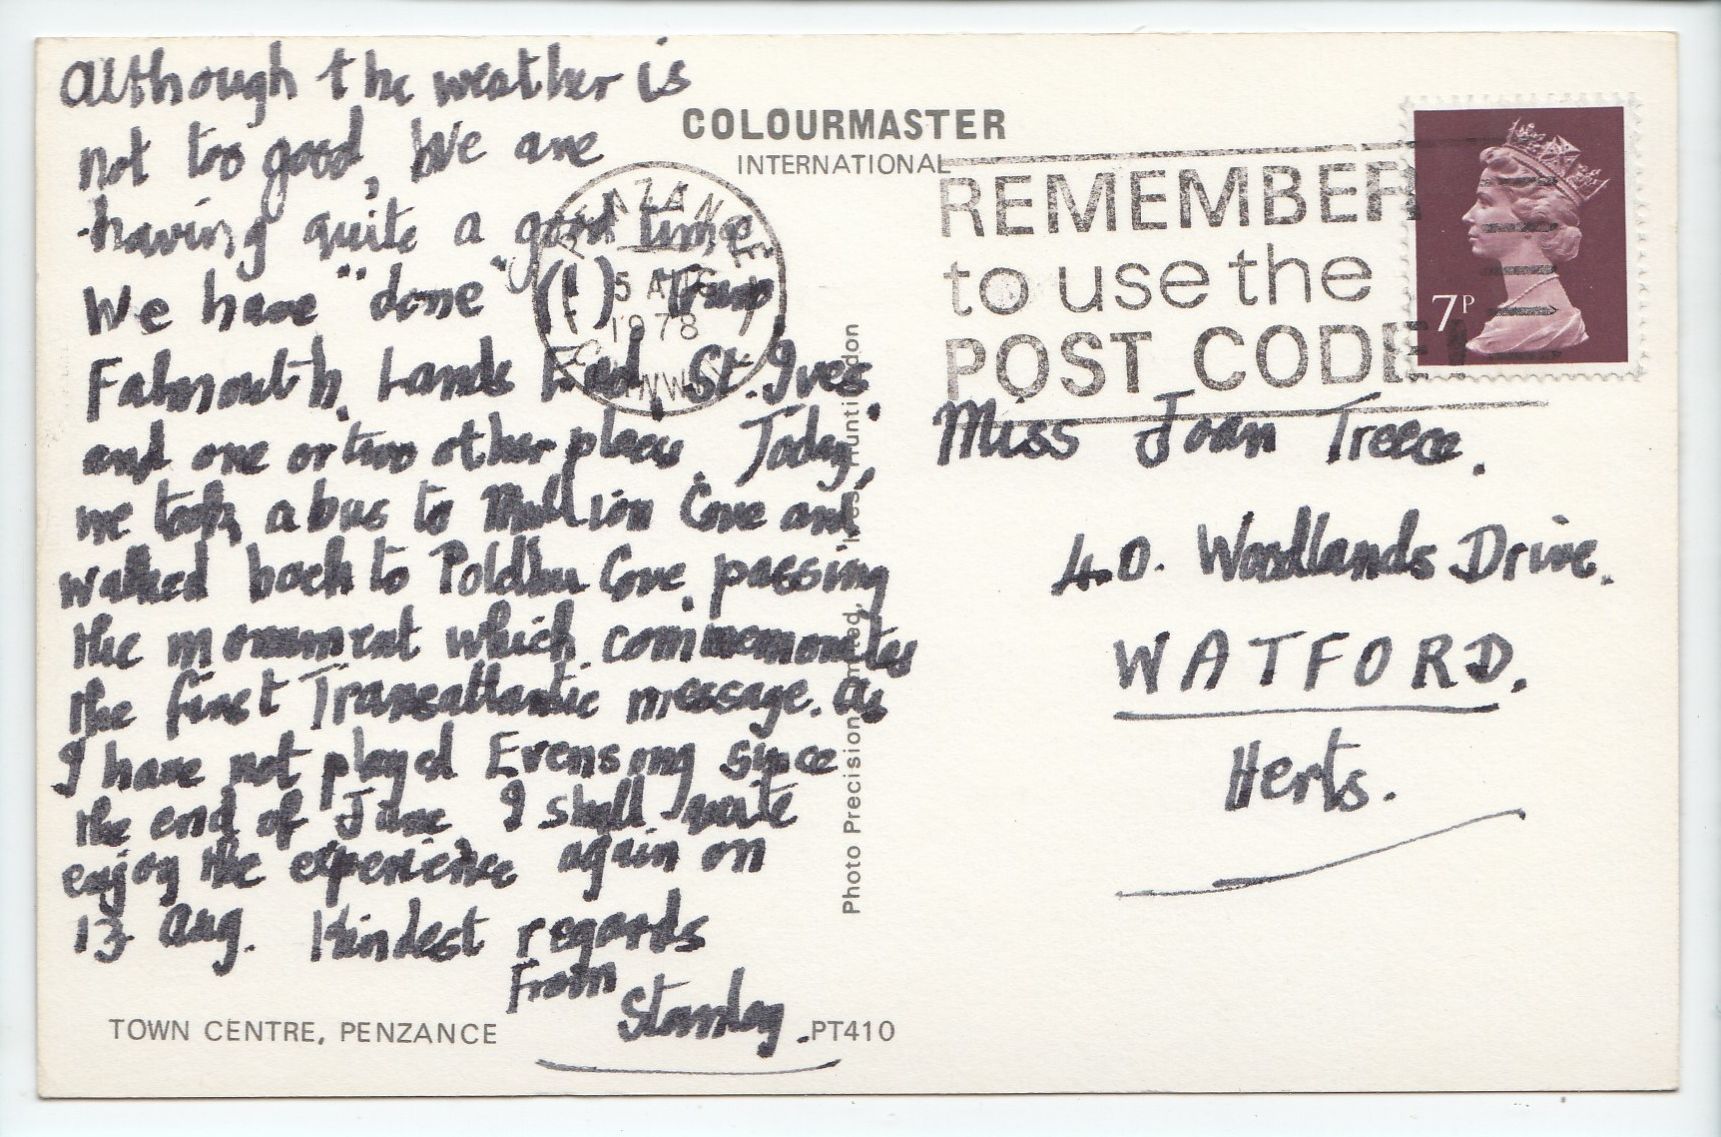 Although the weather is
not too good, We are
having quite a good time
We have "done" (!) Truro,
Falmouth, Lands End, St. Ives,
and one or two other places. Today,
we took a bus to Mullion Cove and
walked back to Poldhu Cove, passing
the monument which commemorates
the first Transatlantic message. As
I have not played Evensong since
the end of June I shall quite
enjoy the experience again on
13 Aug. Kindest regards
From
Stanley.
TOWN CENTRE, PENZANCE
PT410
COLOURMASTER
INTERNATIONAL
PENZANCE
5 AUG
1978
CORNWALL
Photo Precision Limited, St. Ives, Huntingdon
REMEMBER
to use the
POST CODE!
7P
Miss Joan Treece.
40. Woodlands Drive.
WATFORD.
Herts.